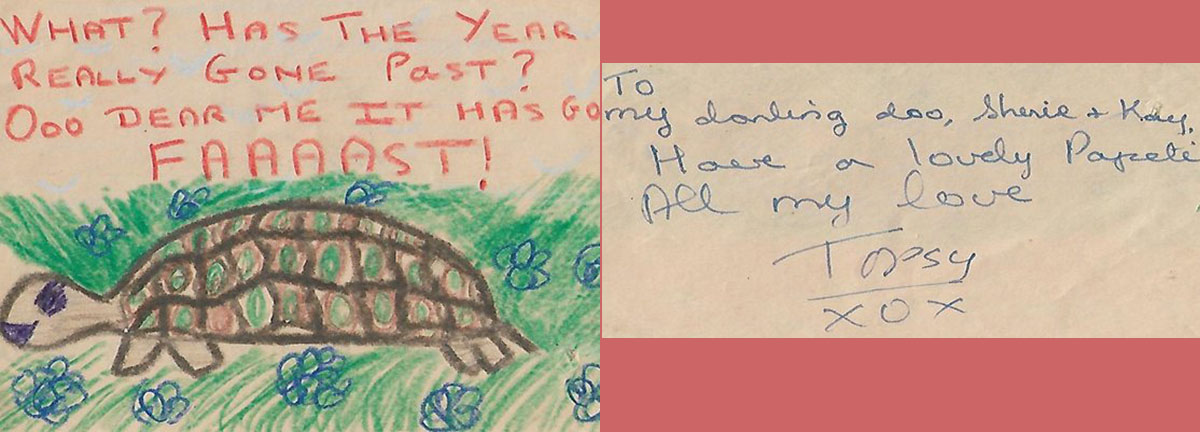 WHAT? HAS THE YEAR
REALLY GONE PAST?
Ooo DEAR ME IT HAS GO
FAAAAST!
To
my darling doo, Sherie + Kay,
Have a lovely Papeti
All my love
Topsy
xox